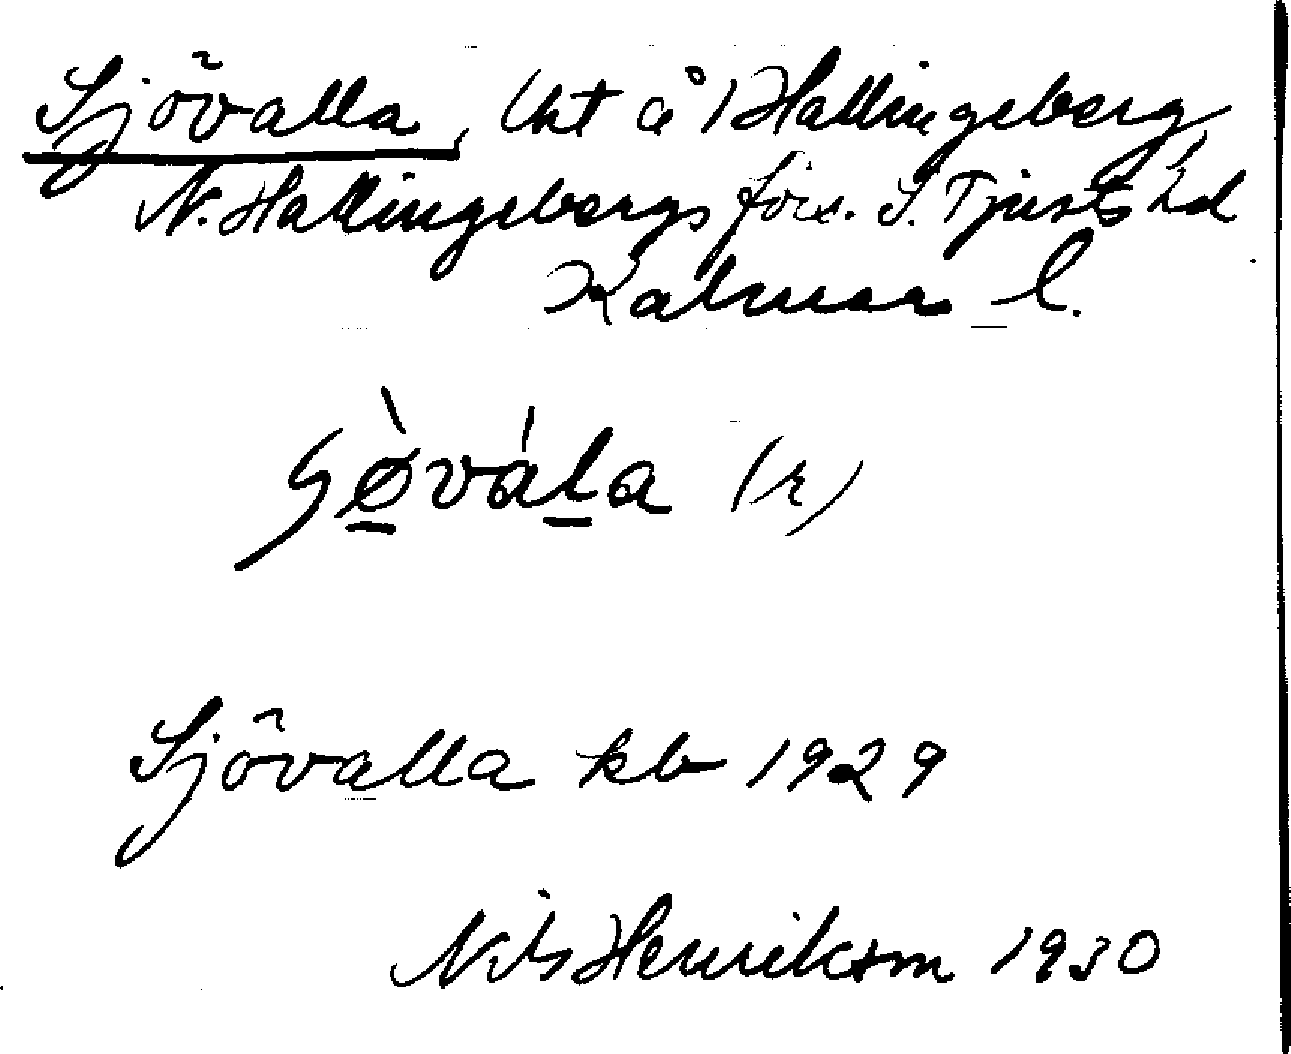 Sjövalla, lht å 1 Hallingeberg,
N. Hallingebergs förs. S. Tjusts hd
Kalmar l.
sø̀vála (r)
Sjövalla kb 1929
Nils Henrikson 1930